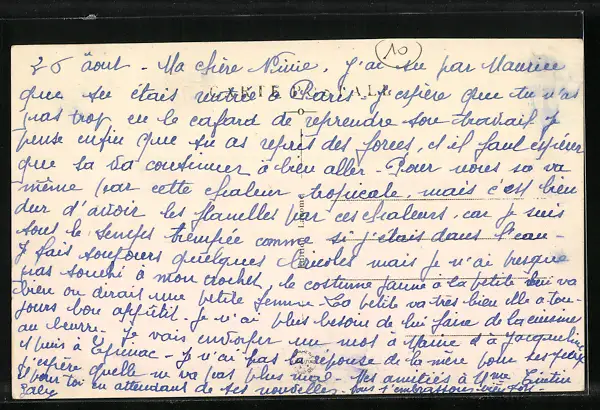 10
26 août - Ma chère Ninie, j'ai su par Maurice
CARTE POSTALE
que tu étais rentrée à Paris j'espère que tu n'as
pas trop eu le cafard de reprendre ton travail je
pense enfin que tu as repris des forces, et il faut espérer
que sa va continuer à bien aller - Pour nous sa va
même par cette chaleur tropicale, mais c'est bien
dur d'avoir les flanelles par ces chaleurs, car je suis
tout le temps trempée comme si j'étais dans l'eau -
Je fais toujours quelques bricoles mais je n'ai presque
pas touché à mon crochet, le costume jaune à la petite lui va
bien on dirait une petite femme - La petite va très bien elle a tou-
jours bon appétit - je n'ai plus besoin de lui faire de la cuisine
au beurre - Je vais envoyer un mot à Marie et à Jacqueline
et puis à - Je n'ai pas la réponse de la mère pour ses
j'espère quelle ne va pas plus mal - Mes amitiés à Mme
et pour toi en attendant de tes nouvelles - nous t'embrassons bien fort -